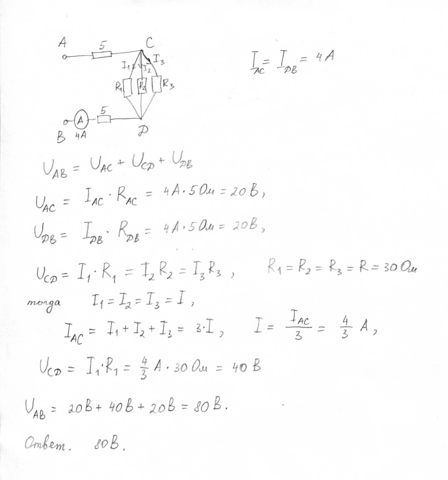 A 5 C I_AC = I_DB = 4A
I₁ I₂ I₃
R₁ R₂ R₃
B A 5 D
4A
U_AB = U_AC + U_CD + U_DB
U_AC = I_AC · R_AC = 4A·5Ом = 20В,
U_DB = I_DB · R_DB = 4A·5Ом = 20В,
U_CD = I₁·R₁ = I₂R₂ = I₃R₃, R₁ = R₂ = R₃ = R = 30 Ом
тогда I₁ = I₂ = I₃ = I,
I_AC = I₁ + I₂ + I₃ = 3·I, I = I_AC/3 = 4/3 A,
U_CD = I₁·R₁ = 4/3 A · 30 Ом = 40 В
U_AB = 20В + 40В + 20В = 80В.
Ответ. 80В.